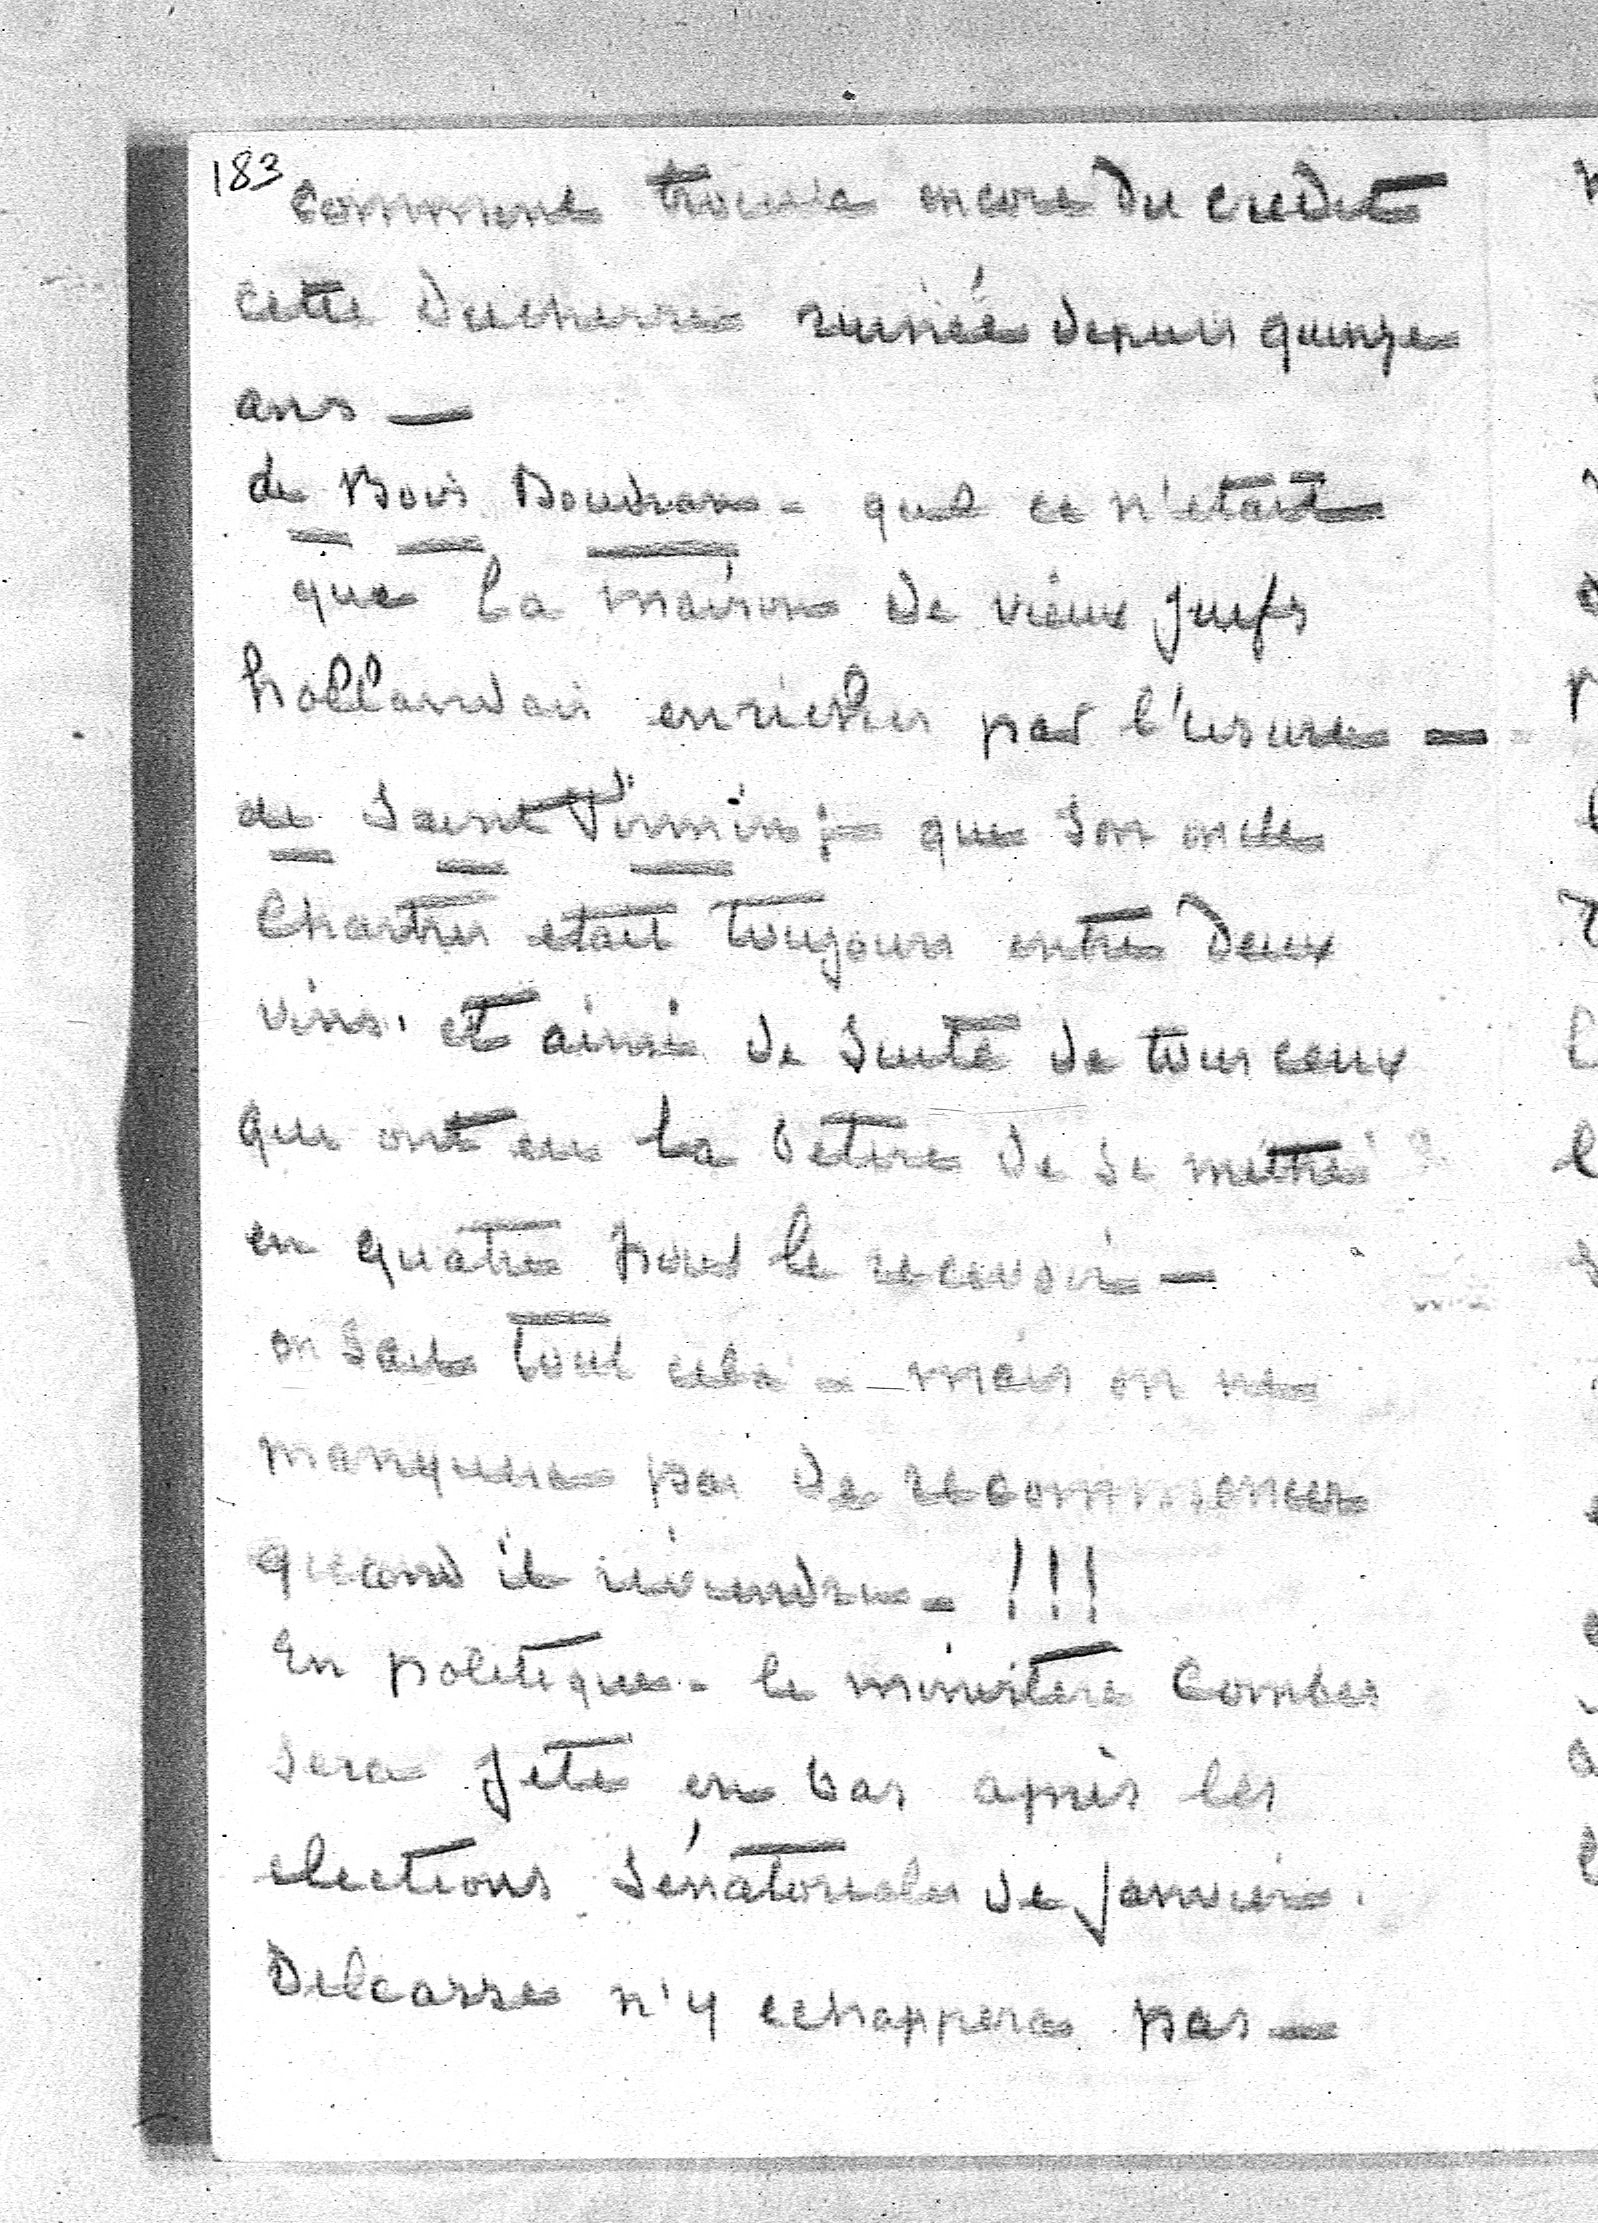 183
Comment trouve encore du credit
cette Duchesse ruinée depuis quinze
ans —
de Bois Boudran - que ce n'etait
que la maison de vieux juifs
hollandais enrichis par l'usure —
de Saint Firmin ;- que son oncle
Chartres etait toujours entre deux
vins. et ainsi de suite de tous ceux
qui ont eu la betise de se mettre
en quatre pour le recevoir —
on sait tout cela - mais on ne
manquera pas de recommencer
quand il reviendra - !!!
En politique - le ministere Combes
sera jeté en bas après les
elections Sénatoriales de janvier.
Delcasse n'y echappera pas —